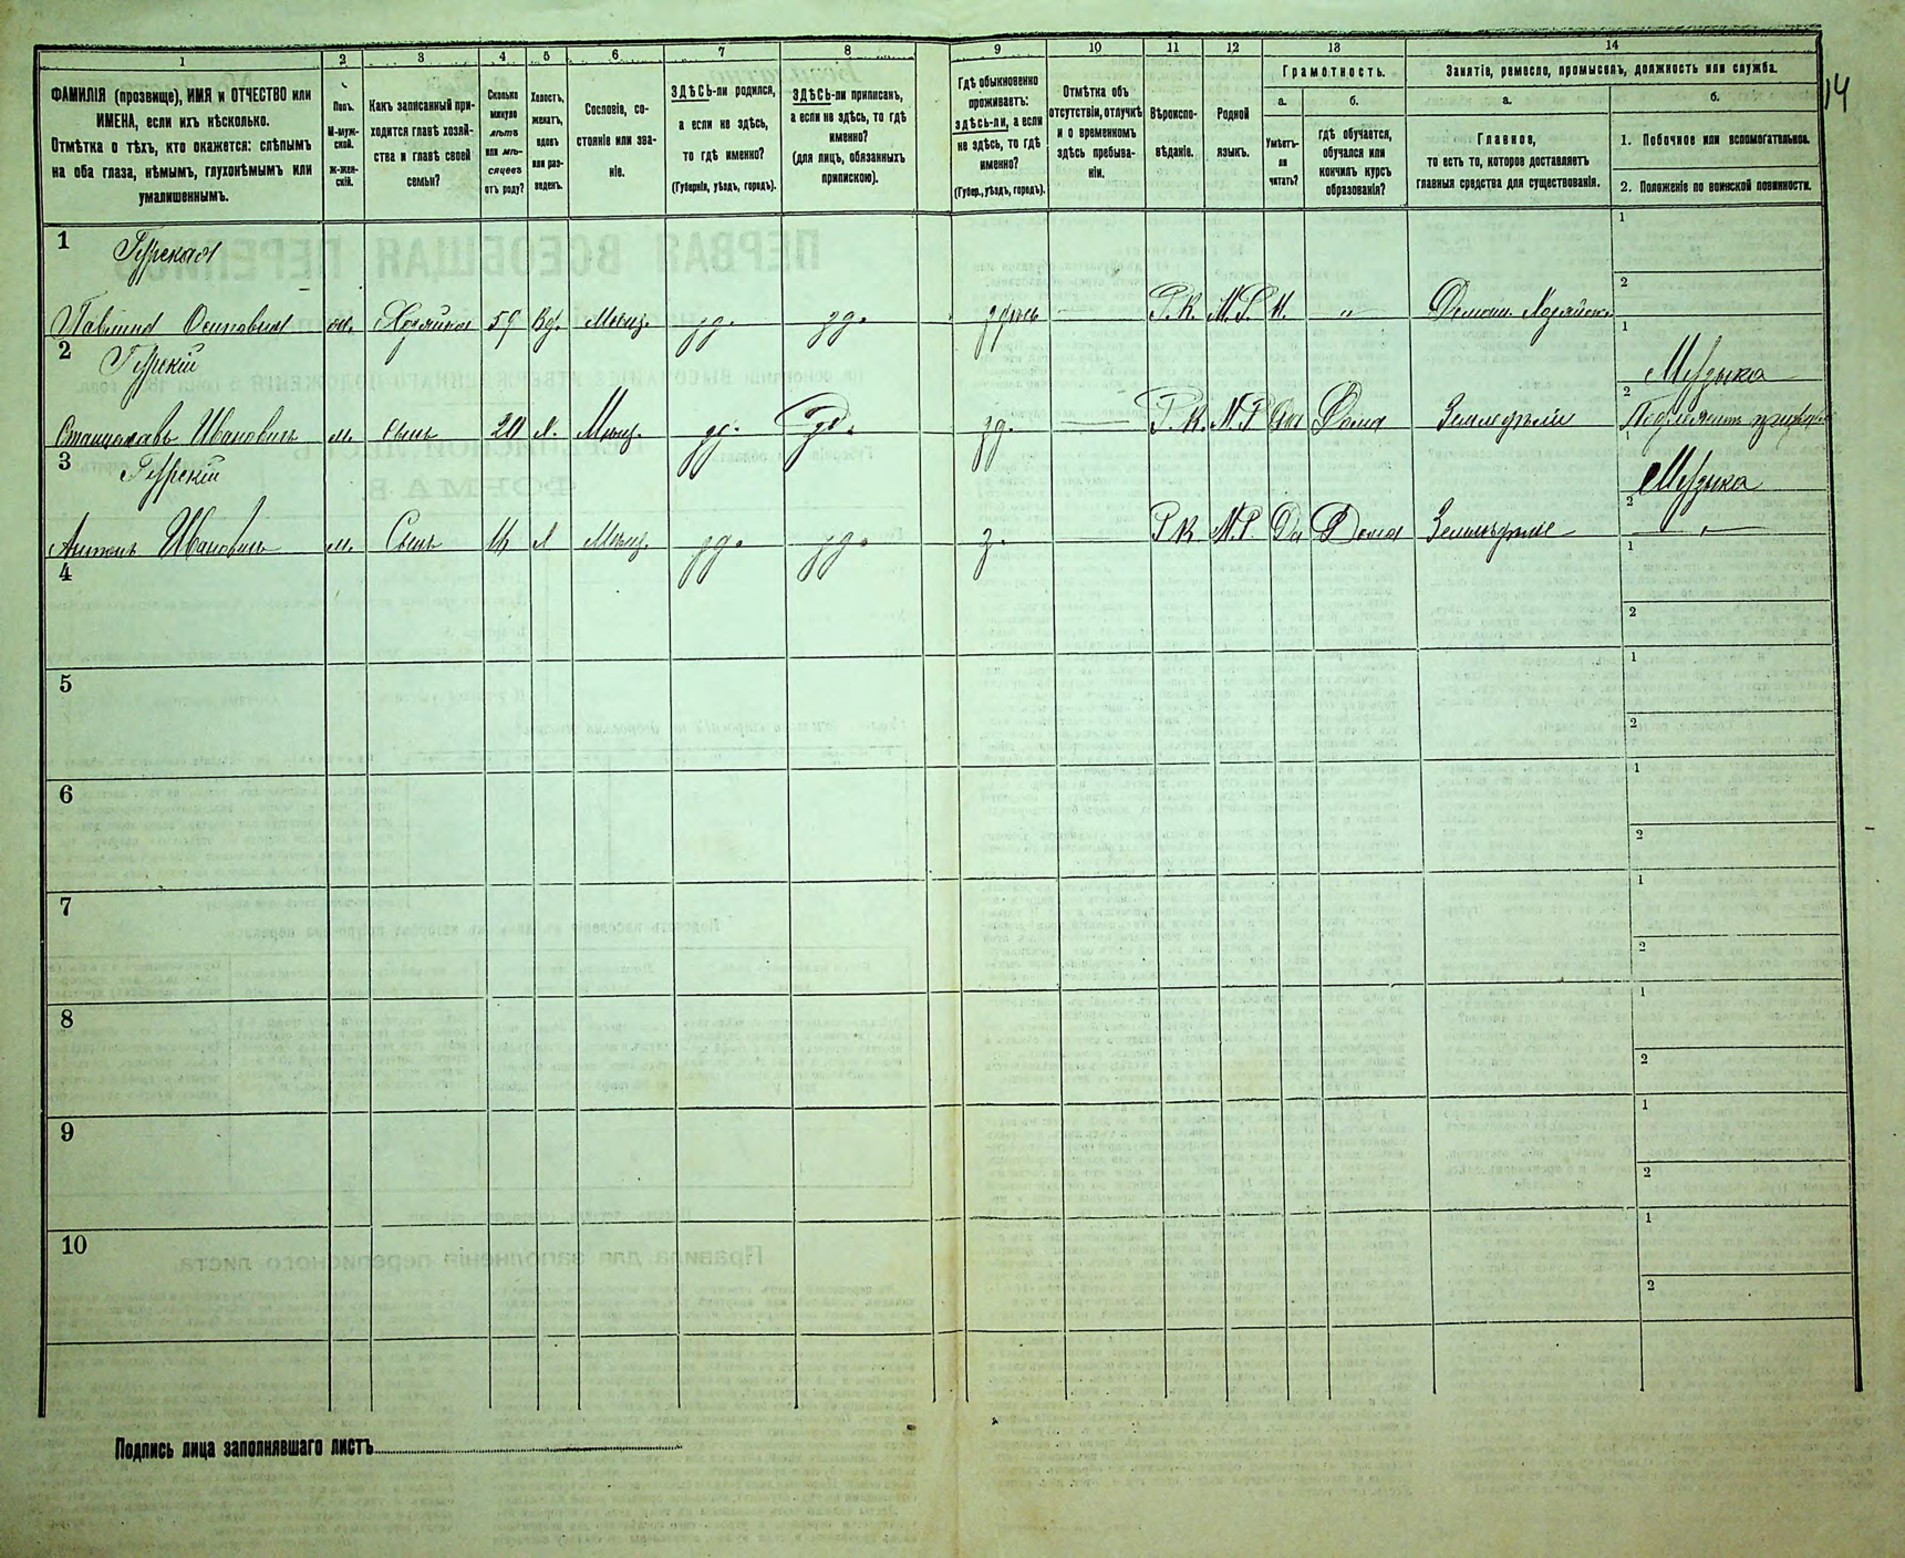 1 2 3 4 5 6 7 8 9 10 11 12 13 14
ФАМИЛІЯ (прозвище), ИМЯ и ОТЧЕСТВО или
ИМЕНА, если ихъ нѣсколько.
Отмѣтка о тѣхъ, кто окажется: слѣпымъ
на оба глаза, нѣмымъ, глухонѣмымъ или
умалишеннымъ.
Полъ.
М-муж-
ской.
Ж-жен-
скій.
Какъ записанный при-
ходится главѣ хозяй-
ства и главѣ своей
семьи?
Сколько
минуло
лѣтъ
или мѣ-
сяцевъ
отъ роду?
Холостъ,
женатъ,
вдовъ
или раз-
веденъ.
Сословіе, со-
стояніе или зва-
ніе.
ЗДѢСЬ-ли родился,
а если не здѣсь,
то гдѣ именно?
(Губернія, уѣздъ, городъ).
ЗДѢСЬ-ли приписанъ,
а если не здѣсь, то гдѣ
именно?
(для лицъ, обязанныхъ
припискою).
Гдѣ обыкновенно
проживаетъ:
здѣсь-ли, а если
не здѣсь, то гдѣ
именно?
(Губер., уѣздъ, городъ).
Отмѣтка объ
отсутствіи, отлучкѣ
и о временномъ
здѣсь пребыва-
ніи.
Вѣроиспо-
вѣданіе.
Родной
языкъ.
Грамотность.
а.
Умѣетъ-
ли
читать?
б.
гдѣ обучается,
обучался или
кончилъ курсъ
образованія?
Занятіе, ремесло, промыселъ, должность или служба.
а.
Главное,
то есть то, которое доставляетъ
главныя средства для существованія.
б.
1. Побочное или вспомогательное.
2. Положеніе по воинской повинности.
14
1 Гурская 1
2
Павлина Осиповна ж. Хозяйка 59 Вд. Мѣщ. зд. зд. здѣсь — Р.К. М.Р. Н. „ Домаш. Хозяйств.
2 Гурскій 1 Музыка
2
Станиславъ Ивановичъ м. сынъ 20 Х. Мѣщ. зд. зд. зд. — Р.К. М.Р. Да Дома Земледѣліе Подлежитъ
3 Гурскій 1 Музыка
2
Антонъ Ивановичъ м. Сынъ Х Мѣщ. зд. зд. з. — Р.К. М.Р. Да Дома Земледѣліе „
4 1
2
5 1
2
6 1
2
7 1
2
8 1
2
9 1
2
10 1
2
Подпись лица заполнявшаго листъ